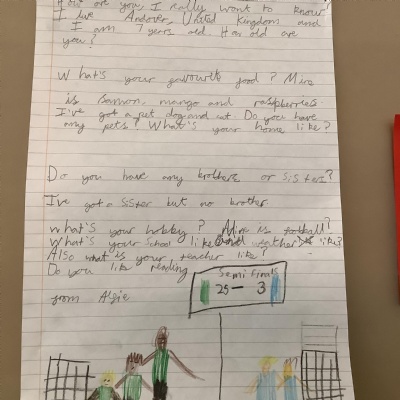 How are you, I really want to know!
I live Andover, United Kingdom and
I am 7 years old. How old are
you?
What's your favourite food? Mine
is samon, mango and raspberries.
I've got a pet dog and cat. Do you have
any pets? What's your home like?
Do you have any brothers or sister?
I've got a sister but no brother
what's your hobby? Mine is football?
What's your school like and weather like?
Also what is your teacher like?
Do you like reading
Semi finals
25 - 3
from Algie